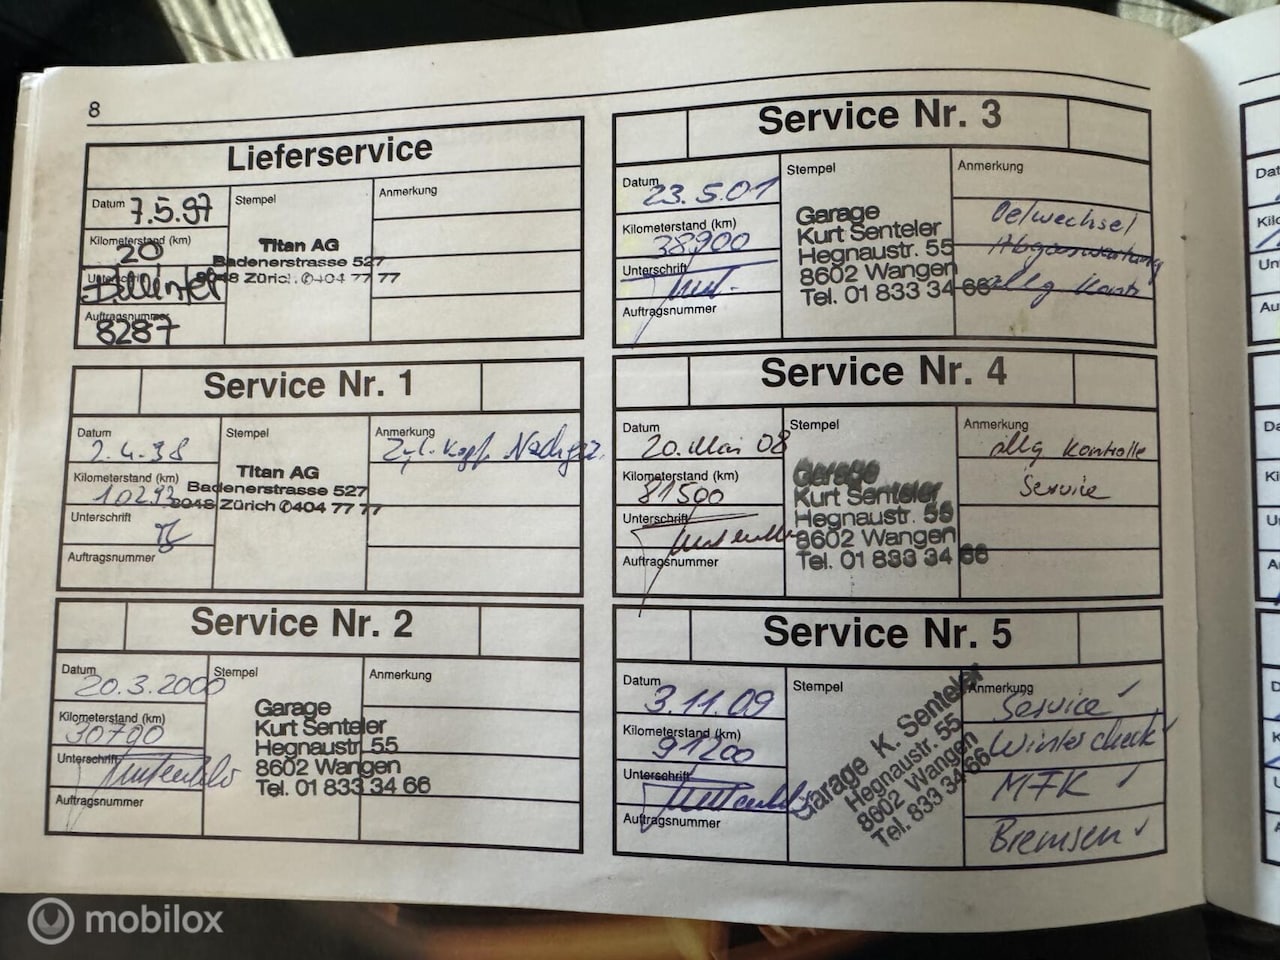 8
Lieferservice
Datum 7.5.97
Stempel
Anmerkung
Kilometerstand (km)
20
Titan AG
Badenerstrasse 527
8048 Zürich ✆404 77 77
Unterschrift
Auftragsnummer
8287
Service Nr. 1
Datum
2.4.98
Stempel
Anmerkung
Zyl. Kopf Nachgez.
Kilometerstand (km)
10293
Titan AG
Badenerstrasse 527
8048 Zürich ✆404 77 77
Unterschrift
Auftragsnummer
Service Nr. 2
Datum
20.3.2000
Stempel
Anmerkung
Kilometerstand (km)
30790
Garage
Kurt Senteler
Hegnaustr. 55
8602 Wangen
Tel. 01 833 34 66
Unterschrift
Auftragsnummer
Service Nr. 3
Datum
23.5.01
Stempel
Anmerkung
Kilometerstand (km)
38900
Garage
Kurt Senteler
Hegnaustr. 55
8602 Wangen
Tel. 01 833 34 66
Oelwechsel
Abgaswartung
allg Kontr
Unterschrift
Auftragsnummer
Service Nr. 4
Datum
20. Mai 08
Stempel
Anmerkung
allg Kontrolle
Service
Kilometerstand (km)
81500
Garage
Kurt Senteler
Hegnaustr. 55
8602 Wangen
Tel. 01 833 34 66
Unterschrift
Auftragsnummer
Service Nr. 5
Datum
3.11.09
Stempel
Anmerkung
Service ✓
Wintercheck ✓
MFK ✓
Bremsen ✓
Kilometerstand (km)
91200
Garage K. Senteler
Hegnaustr. 55
8602 Wangen
Tel. 833 34 66
Unterschrift
Auftragsnummer
mobilox